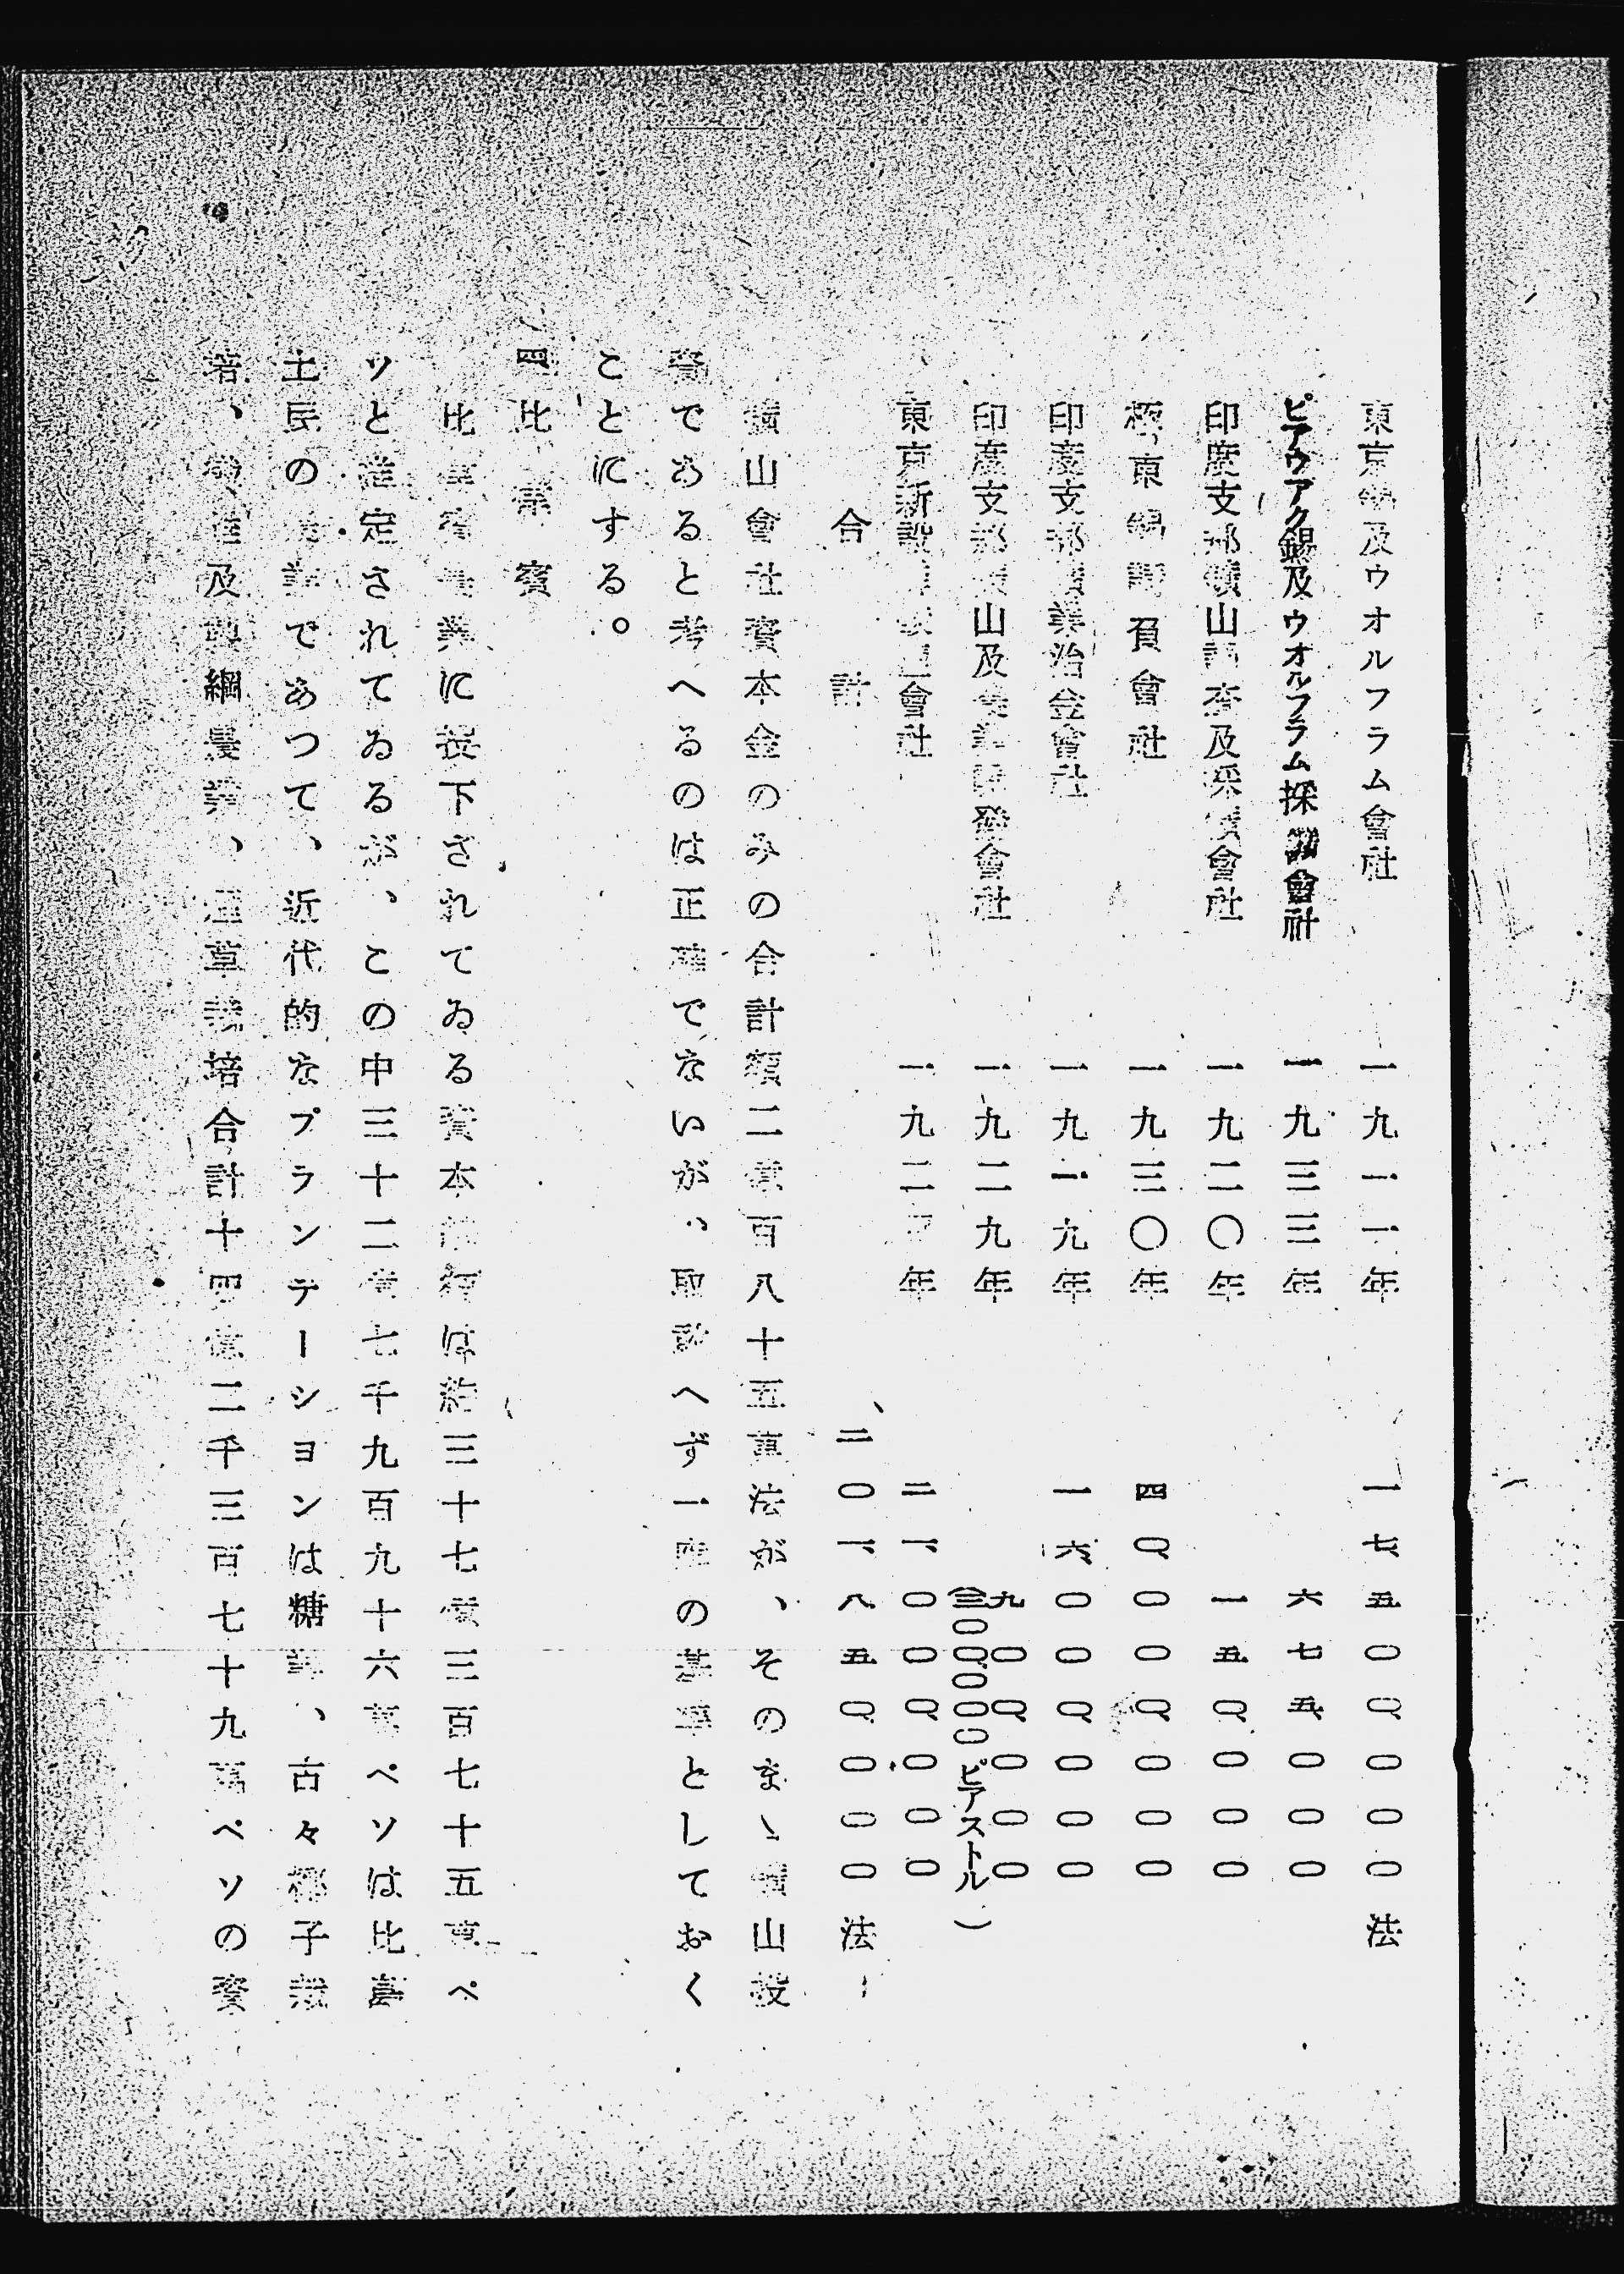 東京錫及ウオルフラム會社 一九一一年 一七、五〇〇、〇〇〇法
ピアウアク錫及ウオルフラム採鑛會社 一九三三年 六七五、〇〇〇
印度支那鑛山調査及採鑛會社 一九二〇年 一五〇、〇〇〇
極東錫調負會社 一九三〇年 四〇、〇〇〇、〇〇〇
印度支那 業冶金會社 一九一九年 一六、〇〇〇、〇〇〇
印度支那鑛山及農業開發會社 一九二九年 九〇〇、〇〇〇
(三〇〇、〇〇〇ピアストル)
東京新設 會社 一九二 年 二一、〇〇〇、〇〇〇
合計 二〇一、八五〇、〇〇〇法
鑛山會社資本金のみの合計額二億百八十五萬法が、そのまゝ鑛山投
資であると考へるのは正確でないが、取敢へず一應の基準としておく
ことにする。
四 比律賓
比律賓農業に投下されてゐる資本 額は約三十七億三百七十五萬ペ
ソと推定されてゐるが、この中三十二億七千九百九十六萬ペソは比島
土民の 業であつて、近代的なプランテーションは糖業、古々椰子栽
培、 及 綱農業、煙草栽培合計十四億二千三百七十九萬ペソの資